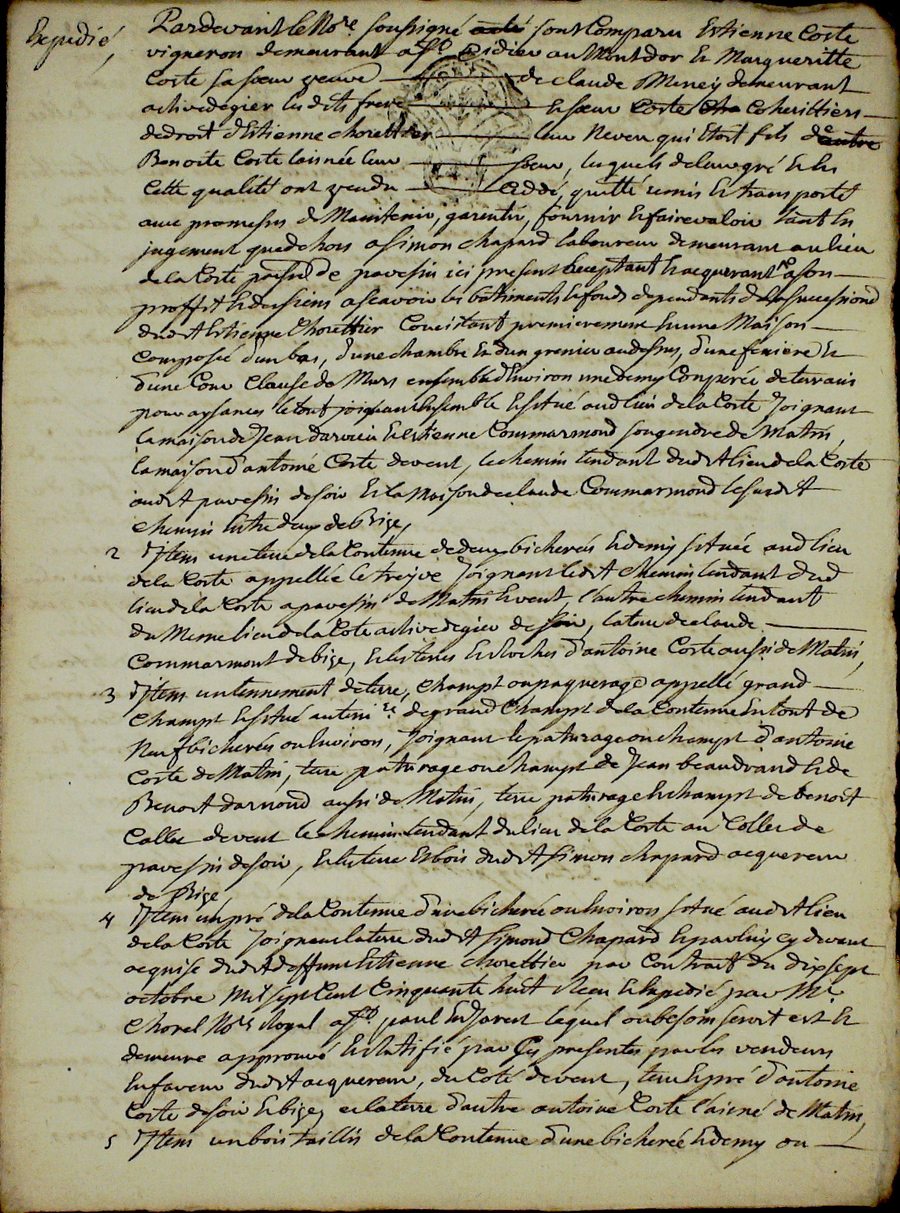 Expedié,
Pardevant le No.re soussigné sont Comparu Estienne Coste
vigneron demeurant a St Didier au Montdor & Margueritte
Coste sa sœur veuve de Claude Meney demeurant
a Rivedegier les dits frere & sœur coheritiers
de droit d'Estienne Chorettier leur Neveu qui êtoit fils de
Benoite Coste laisnée leur sœur, lesquels de leur gré & en
Cette qualité ont vendu Ceddé quitté remis & transporté
avec promesses de Maintenir, garentir, fournir & faire valoir tant en
jugement que dehors a Simon Chapard laboureur demeurant au lieu
de la Coste paroisse de pavesin ici present acceptant & acquerant a son
proffit & des siens a scavoir les bâttiments & fonds dependants de la succession
dudt Estienne Chorettier Consistant premierement En une Maison
Composée d'un bas, d'une chambre & d'un grenier au dessus, d'une feniere &
d'une Cour Clause de Murs ensemble d'Environ une demy Couperée de terrain
pour aysances le tout joignant Ensemble & situé aud lieu de la Coste Joignant
la maison de Jean & Estienne Commarmond son gendre de Matin,
la maison d'antoine Coste de vent, le chemin tendant dudt lieu de la Coste
audt pavesin de soir & la Maison de claude Commarmond le susdt
chemin Entre deux de Bize,
2 Item une terre de la Contenue de deux bicherées & demy située aud lieu
de la Coste appellée le treyve Joignant ledt chemin tendant dud
lieu de la Coste a pavesin de Matin & vent, l'autre chemin tendant
du Meme lieu de la Coste a Rivedegier de soir, la terre de claude
Commarmont de bize, & les terres & d'antoine Coste aussi de Matin,
3 Item un tennement de terre, Champt ou paquerage appellé grand
Champt & situé au terri.re de grand Champt de la Contenue En tout de
Neuf bicherées ou Environ, Joignant le paturage ou champt d'antoine
Coste de Matin, terre paturage ou champt de Jean beaudrand & de
Benoit darnond aussi de Matin, terre paturage & champt de benoit
Collet de vent le chemin tendant du lieu de la Coste au Collet de
pavesin de soir, & les terre & bois dudt Simon chapard acquereur
de Bize
4 Item un pré de la Contenue d'une bicherée ou Environ situé audt lieu
de la Coste Joignant la terre dudt Simond Chapard & par luy cy devant
acquise dudt deffunt Estienne Chorettier par Contrait du dixsept
octobre Mil sept Cent Cinquante huit Reçu & Expedié par Me
Chorel No.re Royal a St paul En Jarest lequel ou besoin seroit est &
demeure approuvé & Ratifié par Ces presentes par les vendeurs
En faveur dudt acquereur, du Coté de vent, terre & pré d'antoine
Coste de soir & bize, & la terre d'autre antoine Coste l'ainé de Matin,
5 Item un bois taillis de la Contenue d'une bicherée & demy ou